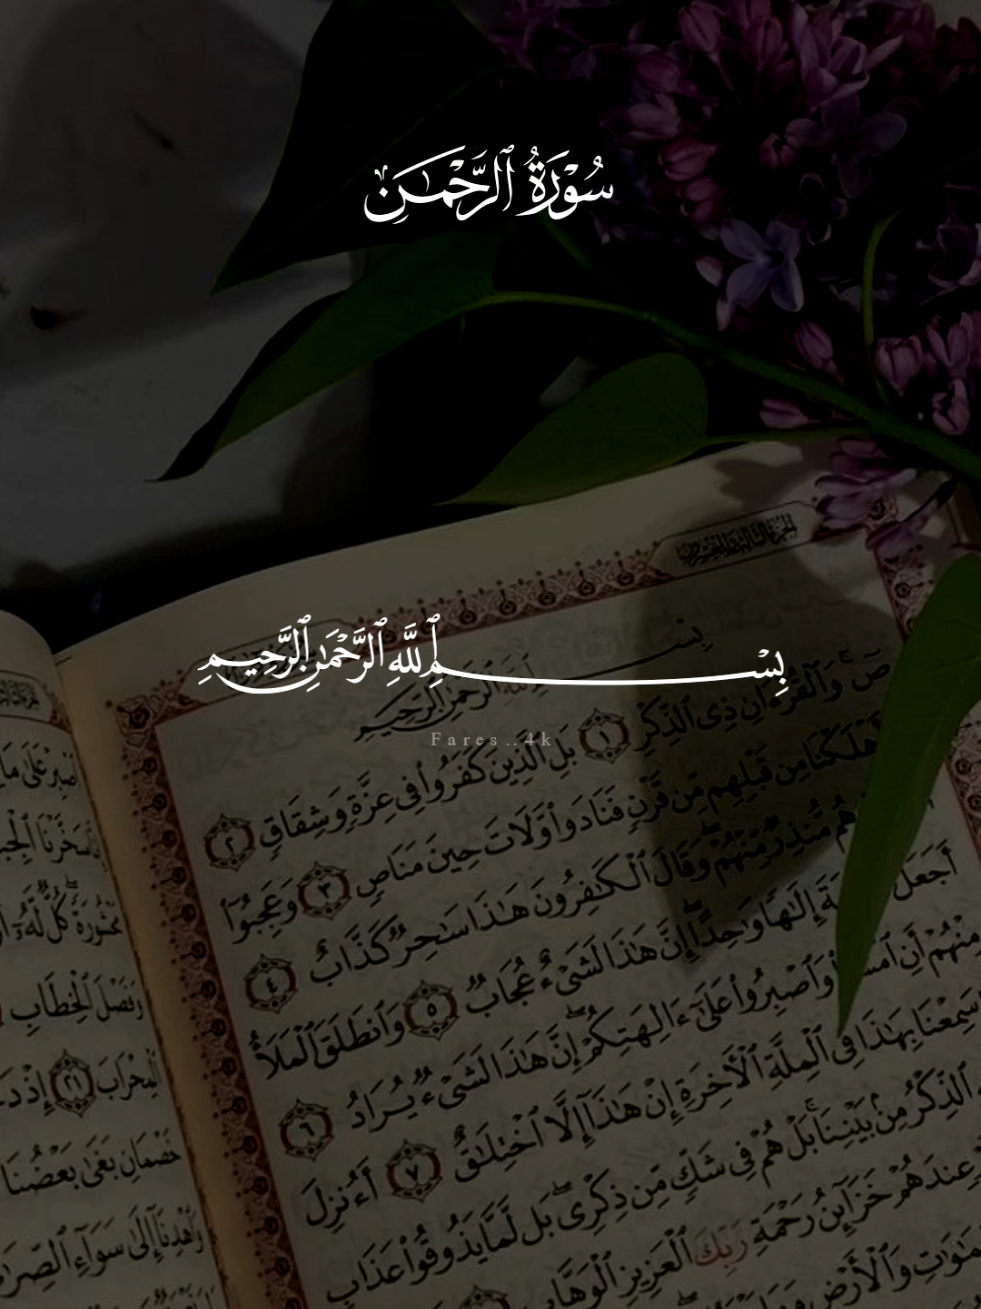 سُورَةُ ٱلرَّحْمَٰن
ٱلْجُزْءُ ٱلثَّالِثُ وَٱلْعِشْرُونَ
بِسْمِ ٱللَّهِ ٱلرَّحْمَٰنِ ٱلرَّحِيمِ
بِسْمِ ٱللَّهِ ٱلرَّحْمَٰنِ ٱلرَّحِيمِ
Fares..4k
صٓ وَٱلْقُرْءَانِ ذِى ٱلذِّكْرِ ١ بَلِ ٱلَّذِينَ كَفَرُوا۟ فِى عِزَّةٍ وَشِقَاقٍ ٢
أَهْلَكْنَا مِن قَبْلِهِم مِّن قَرْنٍ فَنَادَوا۟ وَّلَاتَ حِينَ مَنَاصٍ ٣ وَعَجِبُوٓا۟
هُم مُّنذِرٌ مِّنْهُمْ وَقَالَ ٱلْكَٰفِرُونَ هَٰذَا سَٰحِرٌ كَذَّابٌ ٤
أَجَعَلَ إِلَٰهًا وَٰحِدًا إِنَّ هَٰذَا لَشَىْءٌ عُجَابٌ ٥ وَٱنطَلَقَ ٱلْمَلَأُ
مِنْهُمْ أَنِ وَٱصْبِرُوا۟ عَلَىٰٓ ءَالِهَتِكُمْ إِنَّ هَٰذَا لَشَىْءٌ يُرَادُ ٦
سَمِعْنَا بِهَٰذَا فِى ٱلْمِلَّةِ ٱلْءَاخِرَةِ إِنْ هَٰذَآ إِلَّا ٱخْتِلَٰقٌ ٧ أَءُنزِلَ
ٱلذِّكْرُ مِنۢ بَيْنِنَا بَلْ هُمْ فِى شَكٍّ مِّن ذِكْرِى بَل لَّمَّا يَذُوقُوا۟ عَذَابِ
عِندَهُمْ خَزَآئِنُ رَحْمَةِ رَبِّكَ ٱلْعَزِيزِ ٱلْوَهَّابِ
وَٱلْأَرْضِ
ٱصْبِرْ عَلَىٰ مَا
سَخَّرْنَا ٱلْجِبَ
مَحْشُورَةً كُلٌّ لَّهُۥٓ
وَفَصْلَ ٱلْخِطَابِ
ٱلْمِحْرَابَ ٢١ إِذْ دَ
خَصْمَانِ بَغَىٰ بَعْضُنَا
وَٱهْدِنَآ إِلَىٰ سَوَآءِ ٱلصِّرَٰ